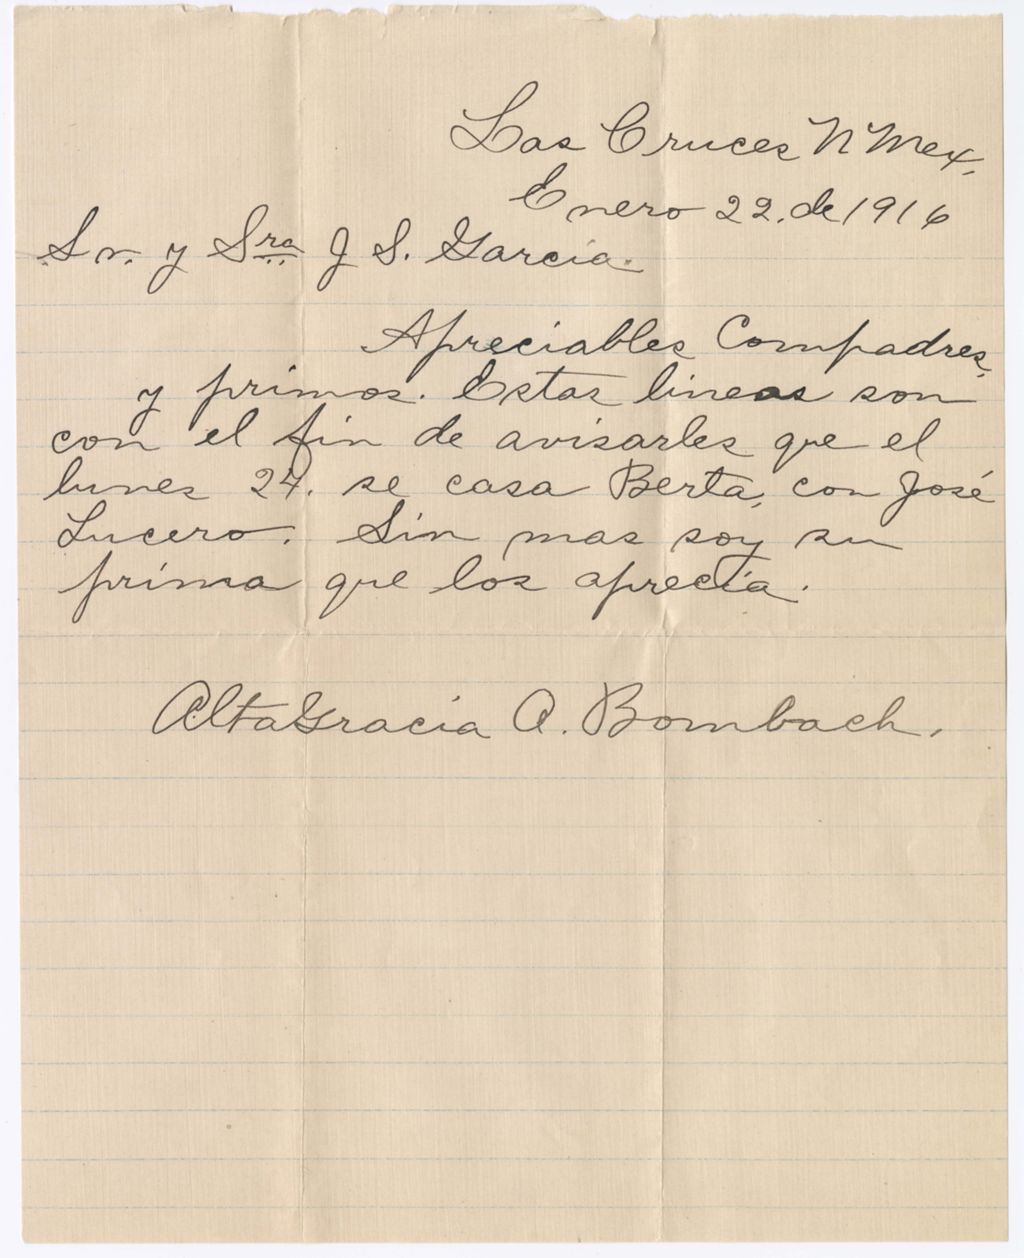 Las Cruces N Mex.
Enero 22. de 1916
Sr. y Sra J S. Garcia.
Apreciables Compadres,
y primos. Estas lineas son
con el fin de avisarles que el
lunes 24. se casa Berta, con José
Lucero. Sin mas soy su
prima que los aprecia.
AltaGracia A. Bombach.